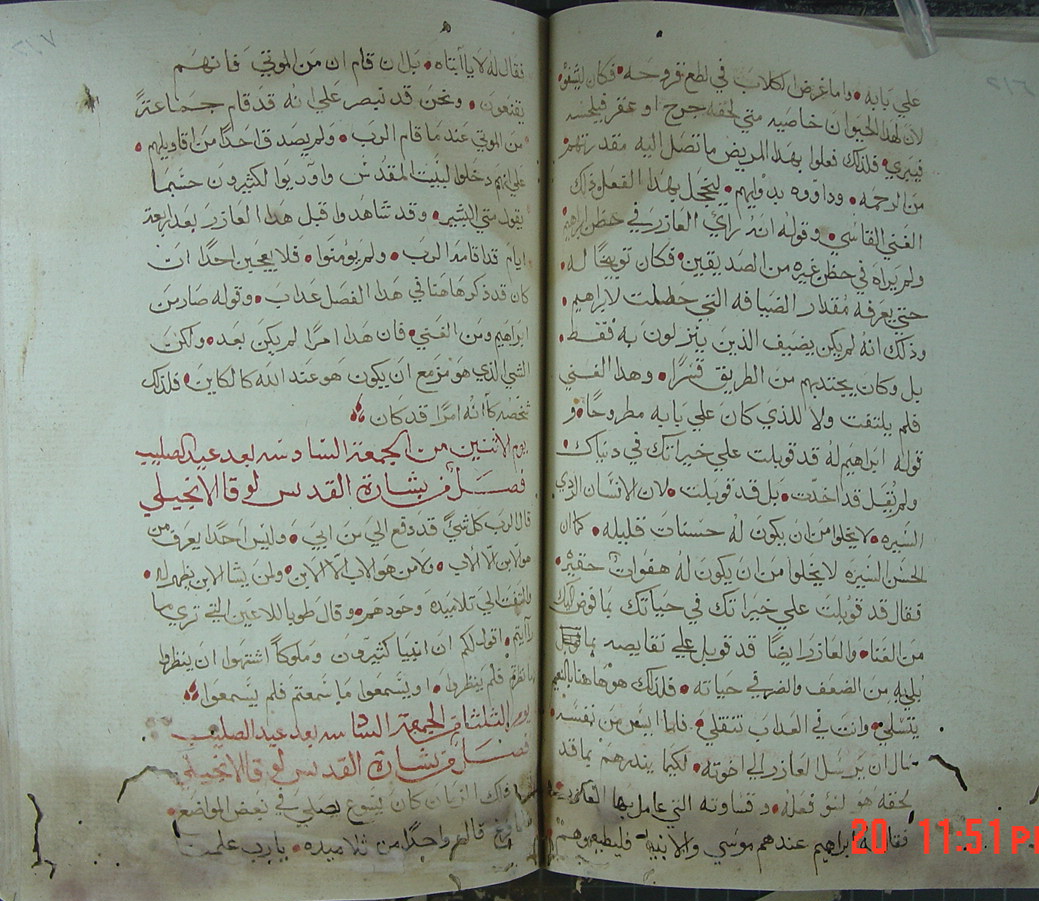 علي بابه • واما غرض الكلاب في لطع قروحه • فكان لتنؤ
لان لهذا الحيوان خاصيه متي لحقه جرح او عقر فيلحسه
فيبري • فلذلك فعلوا بهذا المريض ما تصل اليه مقدرتهم
من الرحمه • وداووه بدوايهم • ليخجل بهذا الفعل ذلك
الغني القاسي • وقوله انه راي العازر في حظن ابراهيم
ولم يراه في حظن غيره من الصديقين • فكان توبيخًا له •
حتي يعرفه مقدار الضيافه التي حصلت لابراهيم •
وذلك انه لم يكن يضيف الذين ينزلون به فقط •
بل وكان يجتذبهم من الطريق قسرًا • وهذا الغني
فلم يلتفت ولا للذي كان علي بابه مطروحًا • و
قوله ابراهيم له قد قوبلت علي خيراتك في دنياك •
ولم يقل قد اخذت • بل قد قوبلت • لان الانسان الردي
السيره • لا يخلوا من ان يكون له حسنات قليله • كما ان
الحسن السيره لا يخلوا من ان يكون له هفوات حقيره •
فقال قد قوبلت علي خيراتك في حياتك بما فوض اليك
من الغنا • والعازر ايضًا قد قوبل علي نقايصه بما
بُليه من الضعف والضر في حياته • فلذلك هو هاهنا بالنعيم
يتسلي • وانت في العذاب تتقلي • فلما ايس من نفسه •
سال ان يرسل لعازر الي اخوته • لكيما ينذرهم بما قد
لحقه هو لسؤ فعله • وقساوته التي عامل بها
فقال له ابراهيم عندهم موسي والانبيا • فليطيعوهم •
فقال له لا يا ابتاه • بل ان قام ان من الموتي فانهم
يقنعون • ونحن قد نبصر علي انه قد قام جماعة
من الموتي عند ما قام الرب • ولم يصدق احدًا من اقاويلهم •
علي انهم دخلوا لبيت المقدس واوريوا لكثيرون حسبما
يقول متي البشير • وقد شاهدوا قبل هذا العازر بعد اربعة
ايام قد اقامه الرب • ولم يومنوا • فلا يعجبن احدًا ان
كان قد ذكر هاهنا في هذا الفصل عذاب • وقوله صار من
ابراهيم ومن الغني • فان هذا امرًا لم يكن بعد • ولكن
الشي الذي هو مزمع ان يكون هو عند الله كالكاين • فلذلك
شخصه كانه امرًا قد كان •
يوم الاثنين من الجمعة السادسه بعد عيد الصليب
فصل من بشارة القديس لوقا الانجيلي
قال الرب كل شيٍ قد دفع الي من ابي • وليس احدًا يعرف من
هو الابن الا الاب • ولا من هو الاب الا الابن • ولمن يشا الابن يظهر له •
والتفت الي تلاميذه وحودهم • وقال طوبا للاعين التي تري ما
رايتم • اقول لكم ان انبيا كثيرون وملوكًا اشتهوا ان ينظروا
ما نظرتم فلم ينظروا • او يسمعوا ما سمعتم فلم يسمعوا •
يوم الثلثا من الجمعة السادسه بعد عيد الصليب
فصل من بشارة القديس لوقا الانجيلي
ذلك الزمان كان يسوع يصلي في بعض المواضع •
قال له واحدًا من تلاميذه • يا رب علمنا
20 11:51 PM